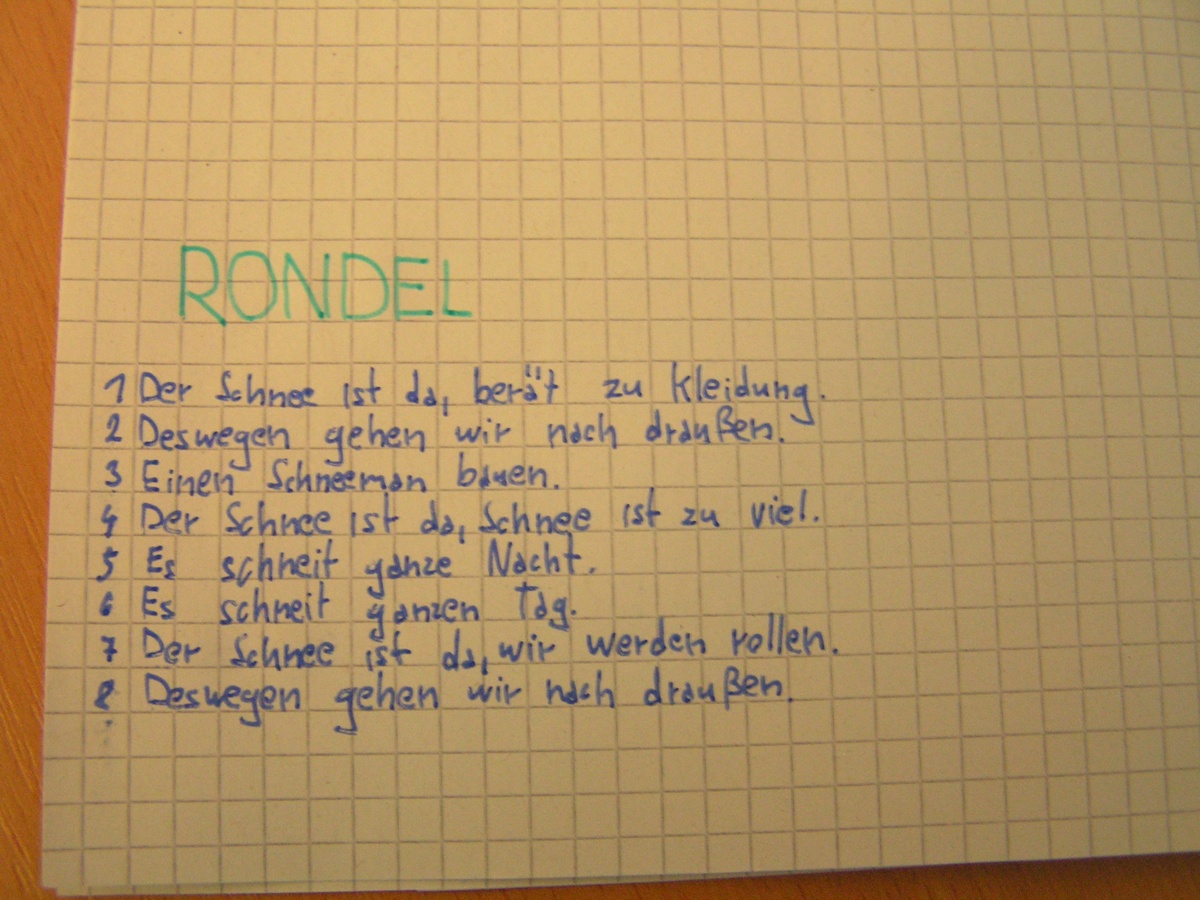 RONDEL
1 Der Schnee ist da, berät zu Kleidung.
2 Deswegen gehen wir nach draußen.
3 Einen Schneeman bauen.
4 Der Schnee ist da, Schnee ist zu viel.
5 Es schneit ganze Nacht.
6 Es schneit ganzen Tag.
7 Der Schnee ist da, wir werden rollen.
8 Deswegen gehen wir nach draußen.